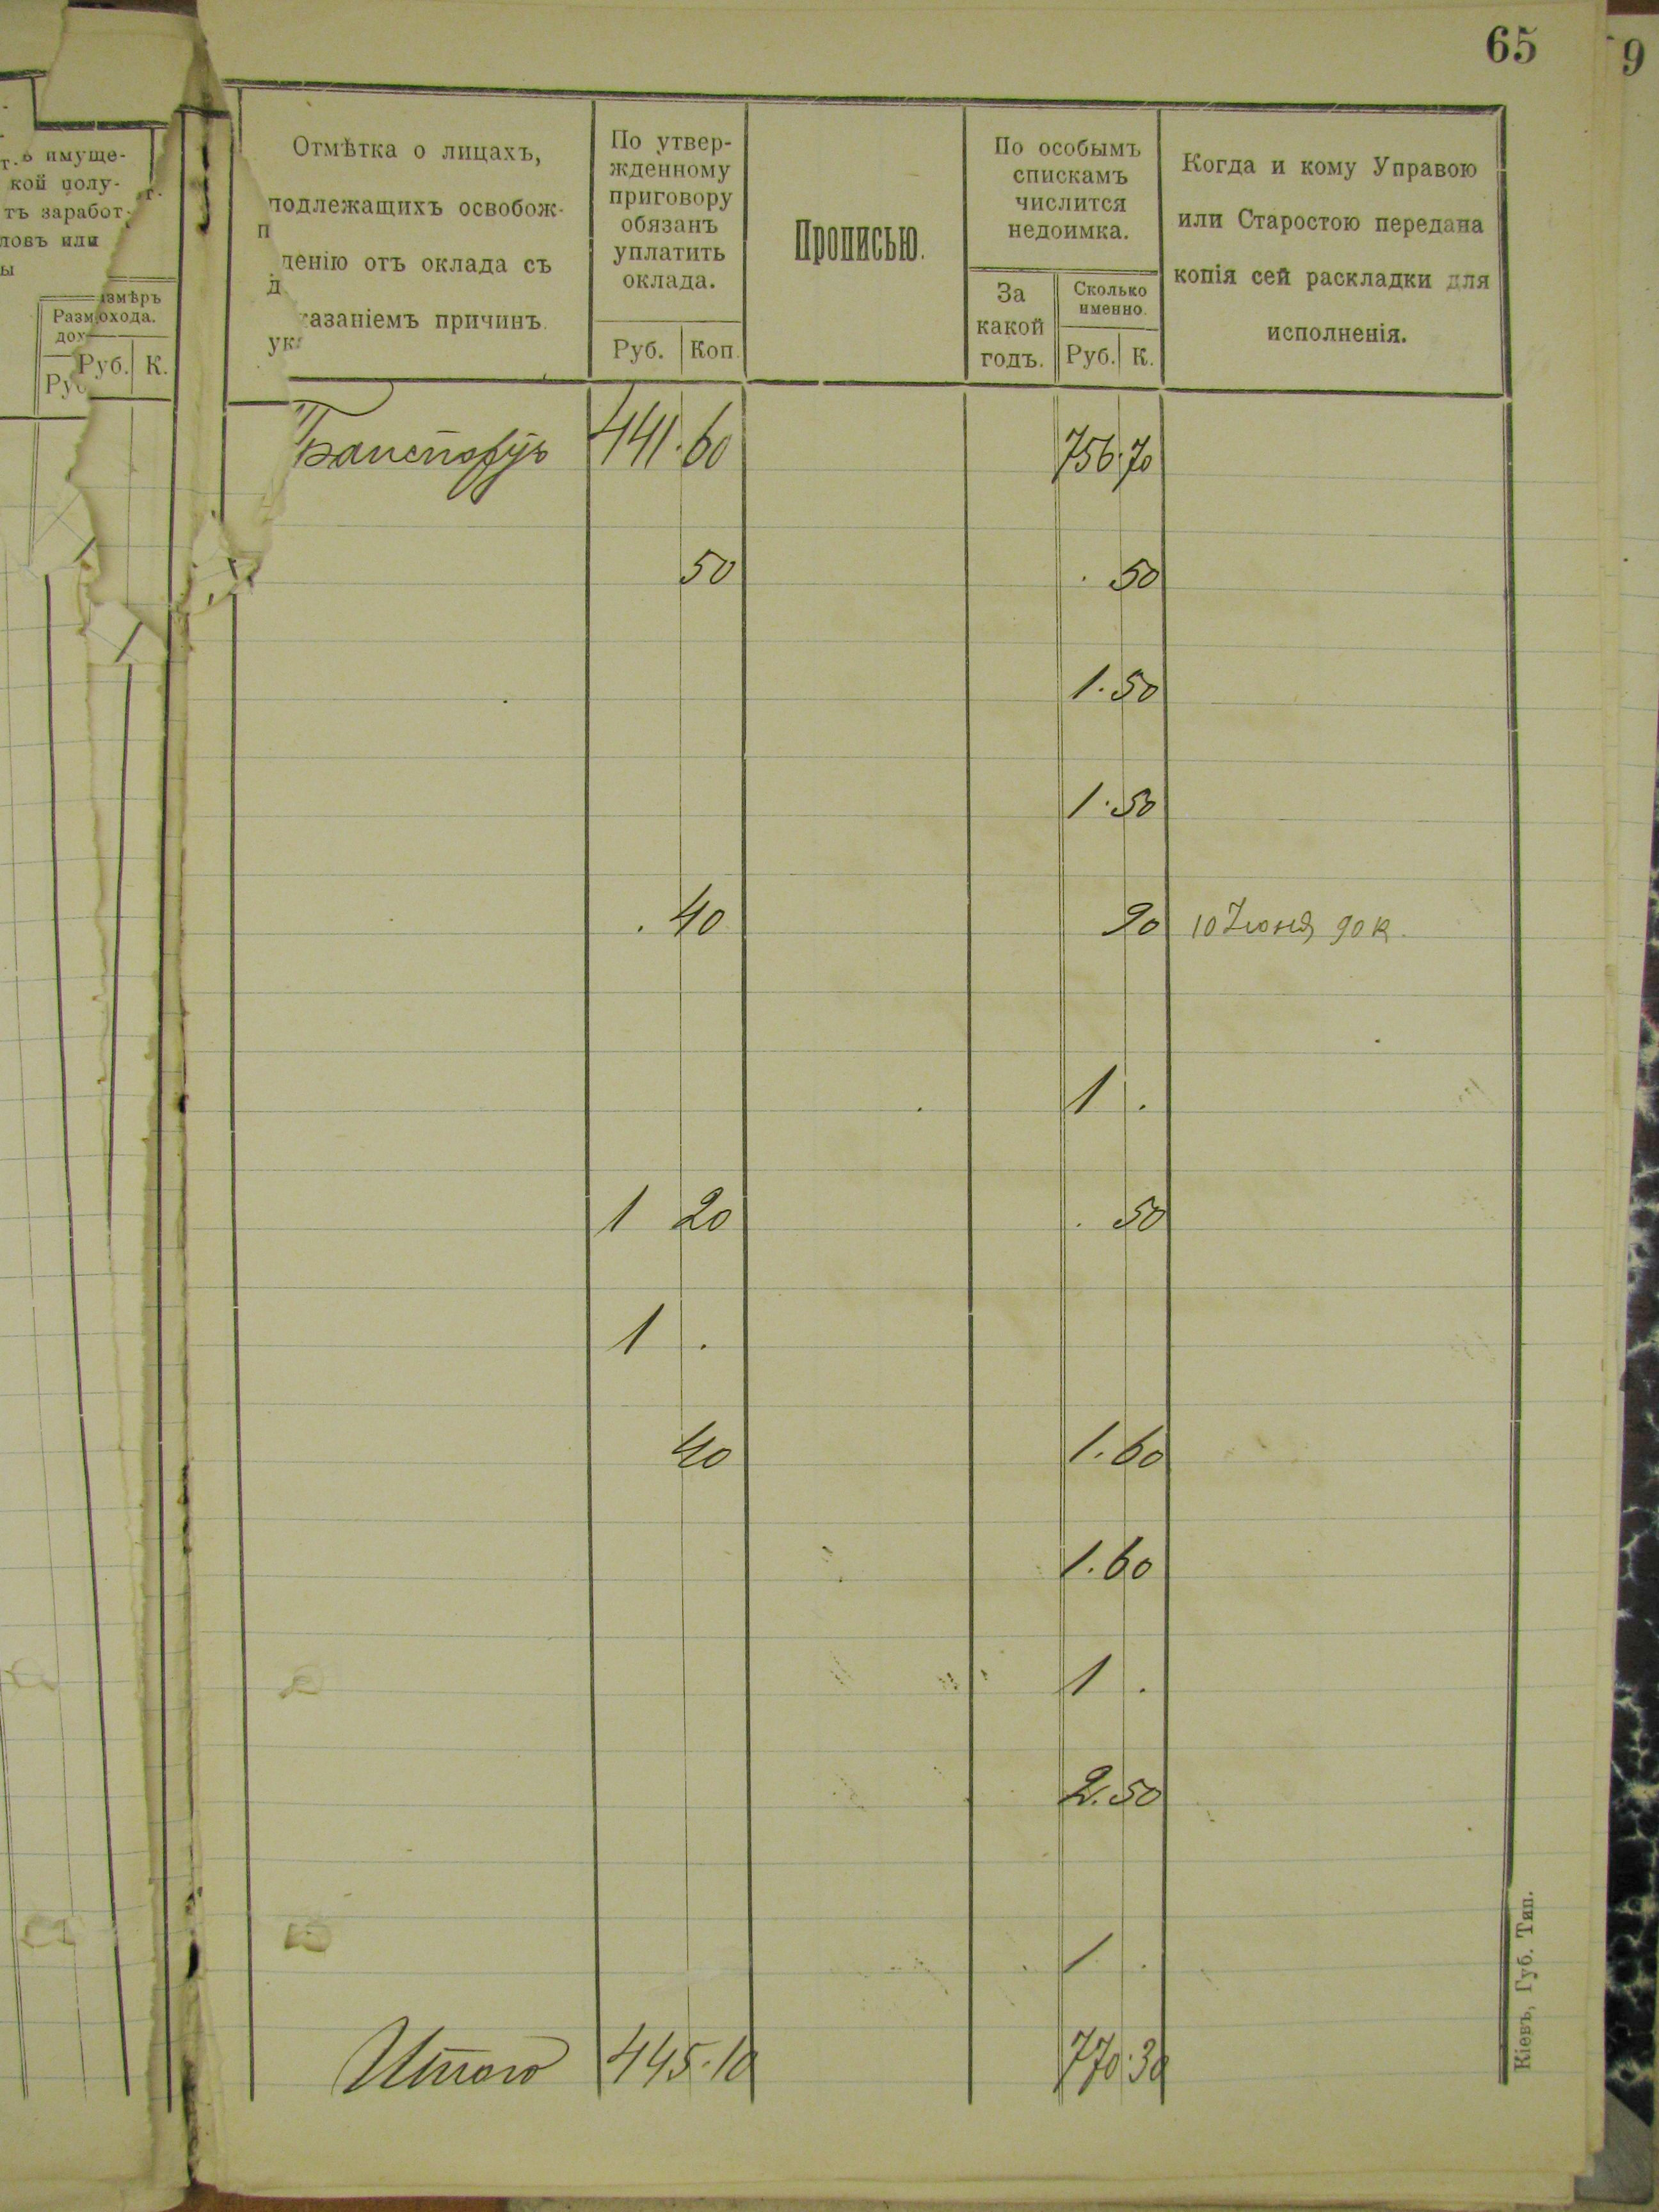 65
9
Отмѣтка о лицахъ,
подлежащихъ освобож-
денію отъ оклада съ
указаніемъ причинъ.
По утвер-
жденному
приговору
обязанъ
уплатить
оклада.
Руб. Коп.
Прописью.
По особымъ
спискамъ
числится
недоимка.
За
какой
годъ.
Сколько
именно.
Руб. К.
Когда и кому Управою
или Старостою передана
копія сей раскладки для
исполненія.
ь имуще-
кой полу-
тъ заработ-
ловъ или
ы
Размѣръ
дохода.
Руб. К.
Транспортъ 441.60 756.70
50 . 50
1.50
1.50
. 40 90 10 Іюня 90 к.
1 .
1 20 . 50
1 .
40 1.60
1.60
1 .
2.50
1 .
Итого 445.10 770.30
Кіевъ, Губ. Тип.